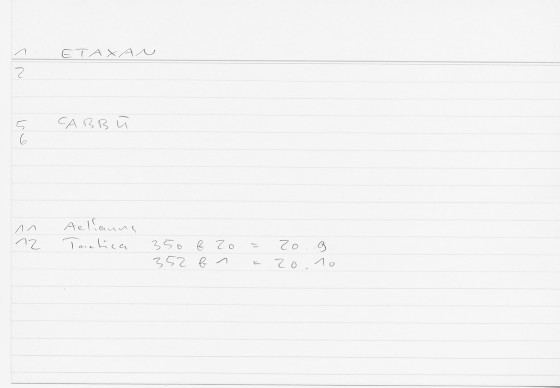 1 ETAXAN
2
5 CABBŪ
6
11 Aelianus
12 Tactica 350 B 20 = 20 9
352 B 1 = 20.10